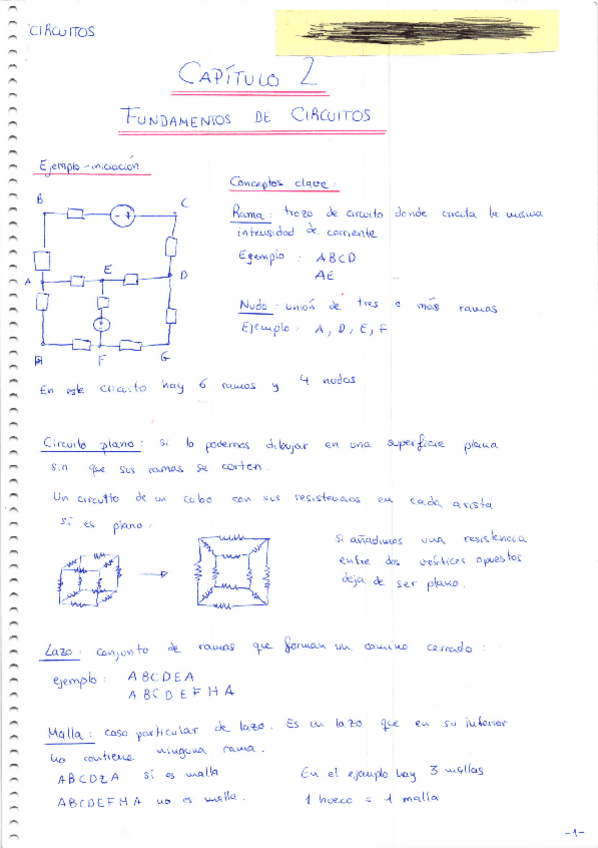 CIRCUITOS
CAPÍTULO 2
FUNDAMENTOS DE CIRCUITOS
Ejemplo-iniciación
Conceptos clave:
B
C
A
E
D
H
F
G
Rama: trozo de circuito donde circula la misma
intensidad de corriente
Ejemplo: ABCD
AE
Nudo: unión de tres o más ramas
Ejemplo: A, D, E, F
En este circuito hay 6 ramas y 4 nudos
Circuito plano: si lo podemos dibujar en una superficie plana
sin que sus ramas se corten.
Un circuito de un cubo con sus resistencias en cada arista
sí es plano:
Si añadimos una resistencia
entre dos vértices opuestos
deja de ser plano.
Lazo: conjunto de ramas que forman un camino cerrado:
ejemplo: ABCDEA
ABCDEFHA
Malla: caso particular de lazo. Es un lazo que en su interior
no contiene ninguna rama.
ABCDEA sí es malla
ABCDEFHA no es malla.
En el ejemplo hay 3 mallas
1 hueco = 1 malla
-1-